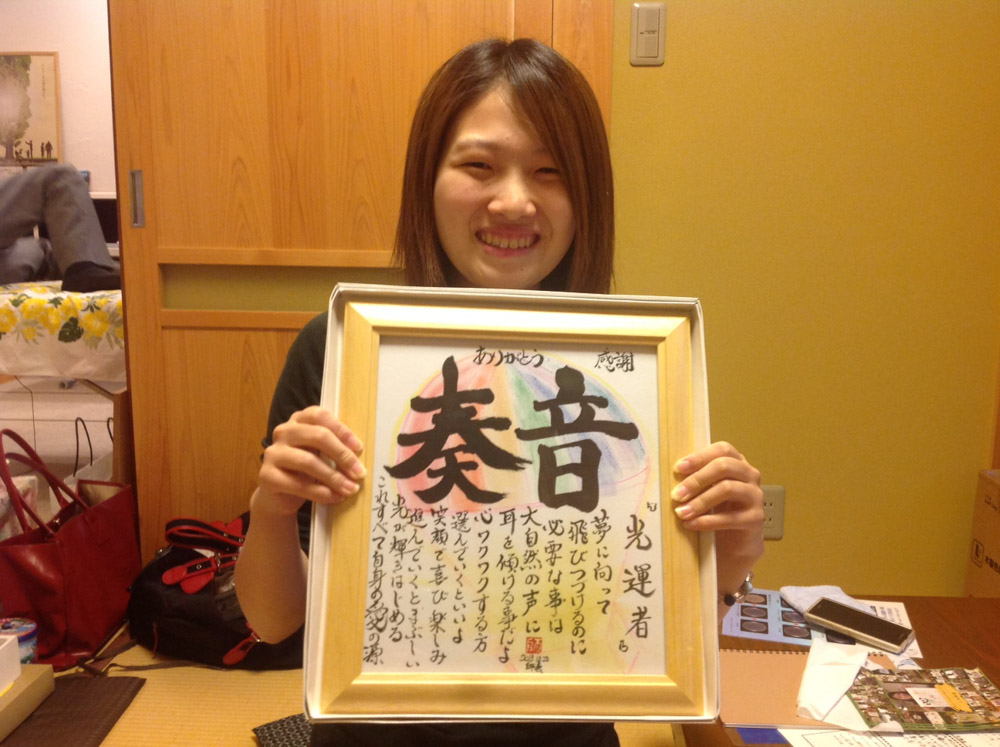 感謝
ありがとう
音
奏
光運者
夢に向って
飛びつづけるのに
必要な事は
大自然の声に
耳を傾ける事だよ
心ワクワクする方
選んでいくといいよ
笑顔で喜び楽しみ
進んでいくとまぶしい
光が輝きはじめる
これすべて自身の愛の源